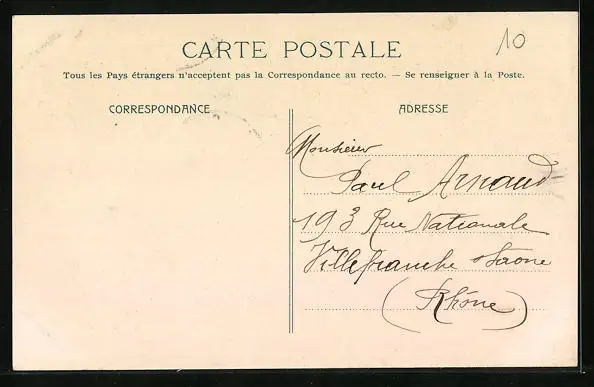 CARTE POSTALE
10
Tous les Pays étrangers n'acceptent pas la Correspondance au recto. — Se renseigner à la Poste.
CORRESPONDANCE
ADRESSE
Monsieur
Paul Arnaud
193 Rue Nationale
Villefranche s/Saone
(Rhône)